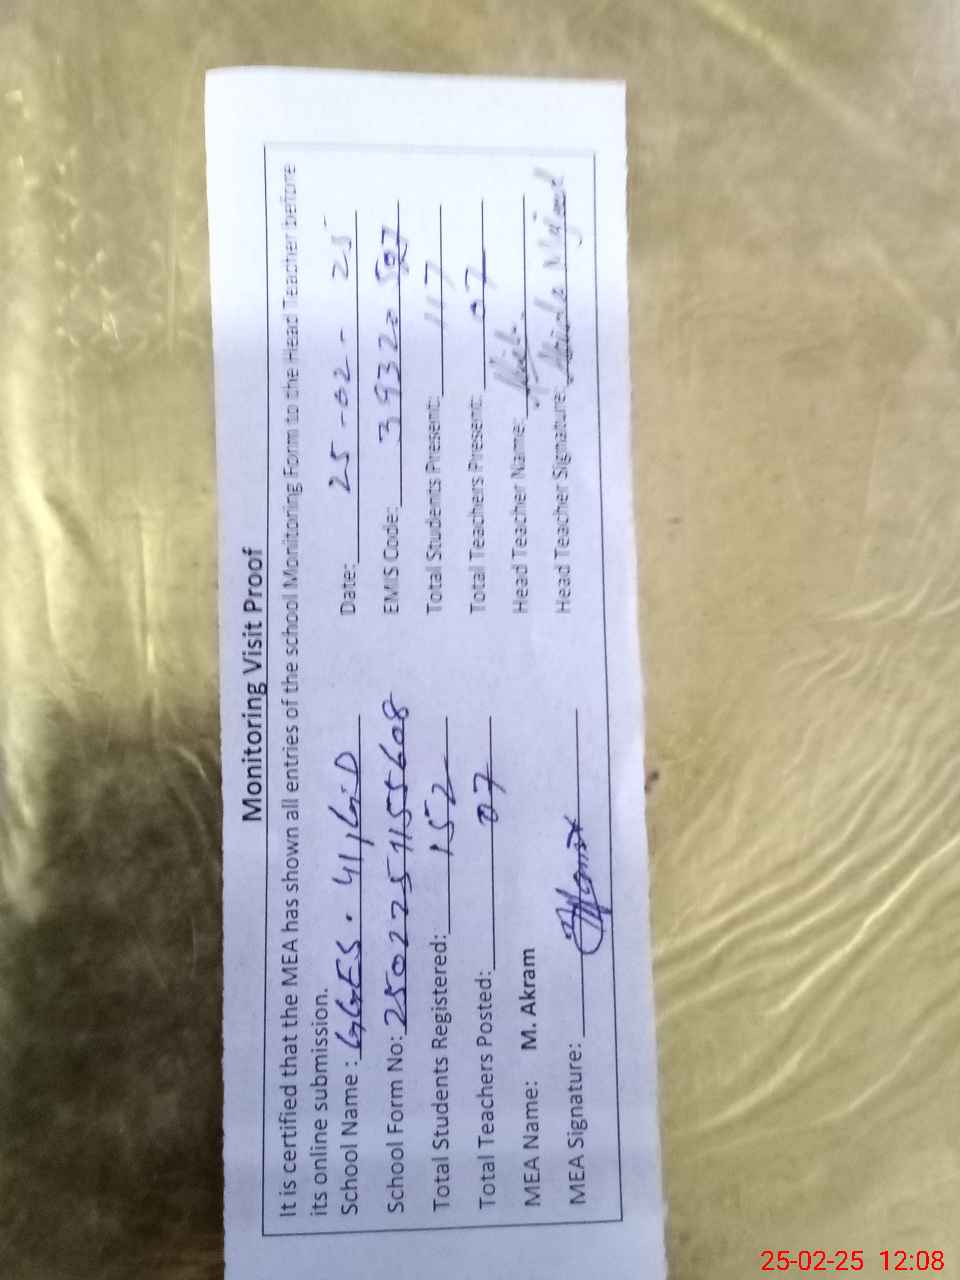 Monitoring Visit Proof
It is certified that the MEA has shown all entries of the school Monitoring Form to the Head Teacher before
its online submission.
School Name : GGES. 41/G.D Date: 25-02-25
School Form No: EMIS Code: 39320507
Total Students Registered: 152 Total Students Present: 117
Total Teachers Posted: 07 Total Teachers Present: 07
MEA Name: M. Akram Head Teacher Name:
MEA Signature: Head Teacher Signature:
25-02-25 12:08